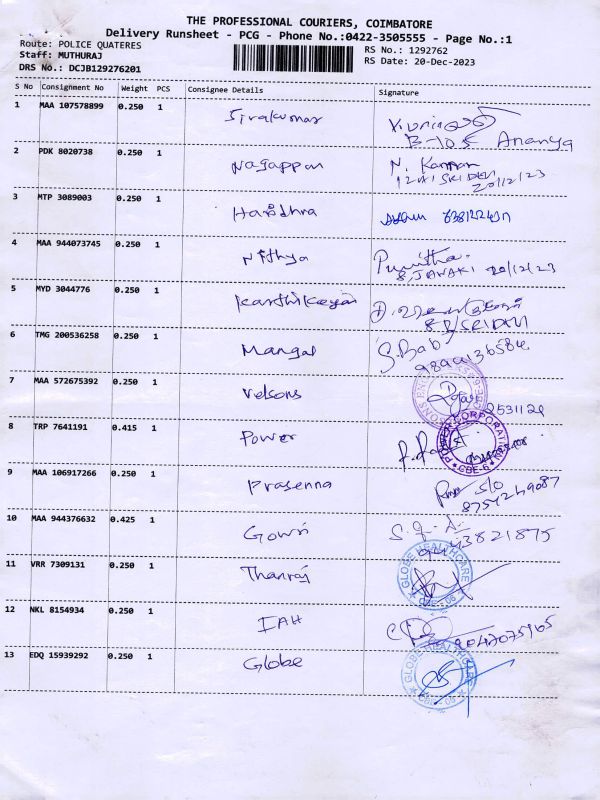 THE PROFESSIONAL COURIERS, COIMBATORE
Delivery Runsheet - PCG - Phone No.:0422-3505555 - Page No.:1
Route: POLICE QUATERES
RS No.: 1292762
Staff: MUTHURAJ
RS Date: 20-Dec-2023
DRS No.: DCJB129276201
S No Consignment No Weight PCS Consignee Details Signature
1 MAA 107578899 0.250 1 Sivakumar
B-105 Ananya
2 PDK 8020738 0.250 1 Nagappan N. Kannan
SRIDEVI 20/12/23
3 MTP 3089003 0.250 1
4 MAA 944073745 0.250 1 Nithya Punitha
S. JANAKI 20/12/23
5 MYD 3044776 0.250 1 Karthikeyan
SRIDEVI
6 TMG 200536258 0.250 1 Mangal S. Bab
9894136584
7 MAA 572675392 0.250 1 Velsons
2531124
8 TRP 7641191 0.415 1 Power
POWER CORPORATION
CBE-6
9 MAA 106917266 0.250 1 Prasenna S/o
8754249087
10 MAA 944376632 0.425 1 Gowri
11 VRR 7309131 0.250 1 Thanraj
GLOBE HEALTHCARE
12 NKL 8154934 0.250 1 IAH
9042075965
13 EDQ 15939292 0.250 1 Globe
GLOBE HEALTHCARE